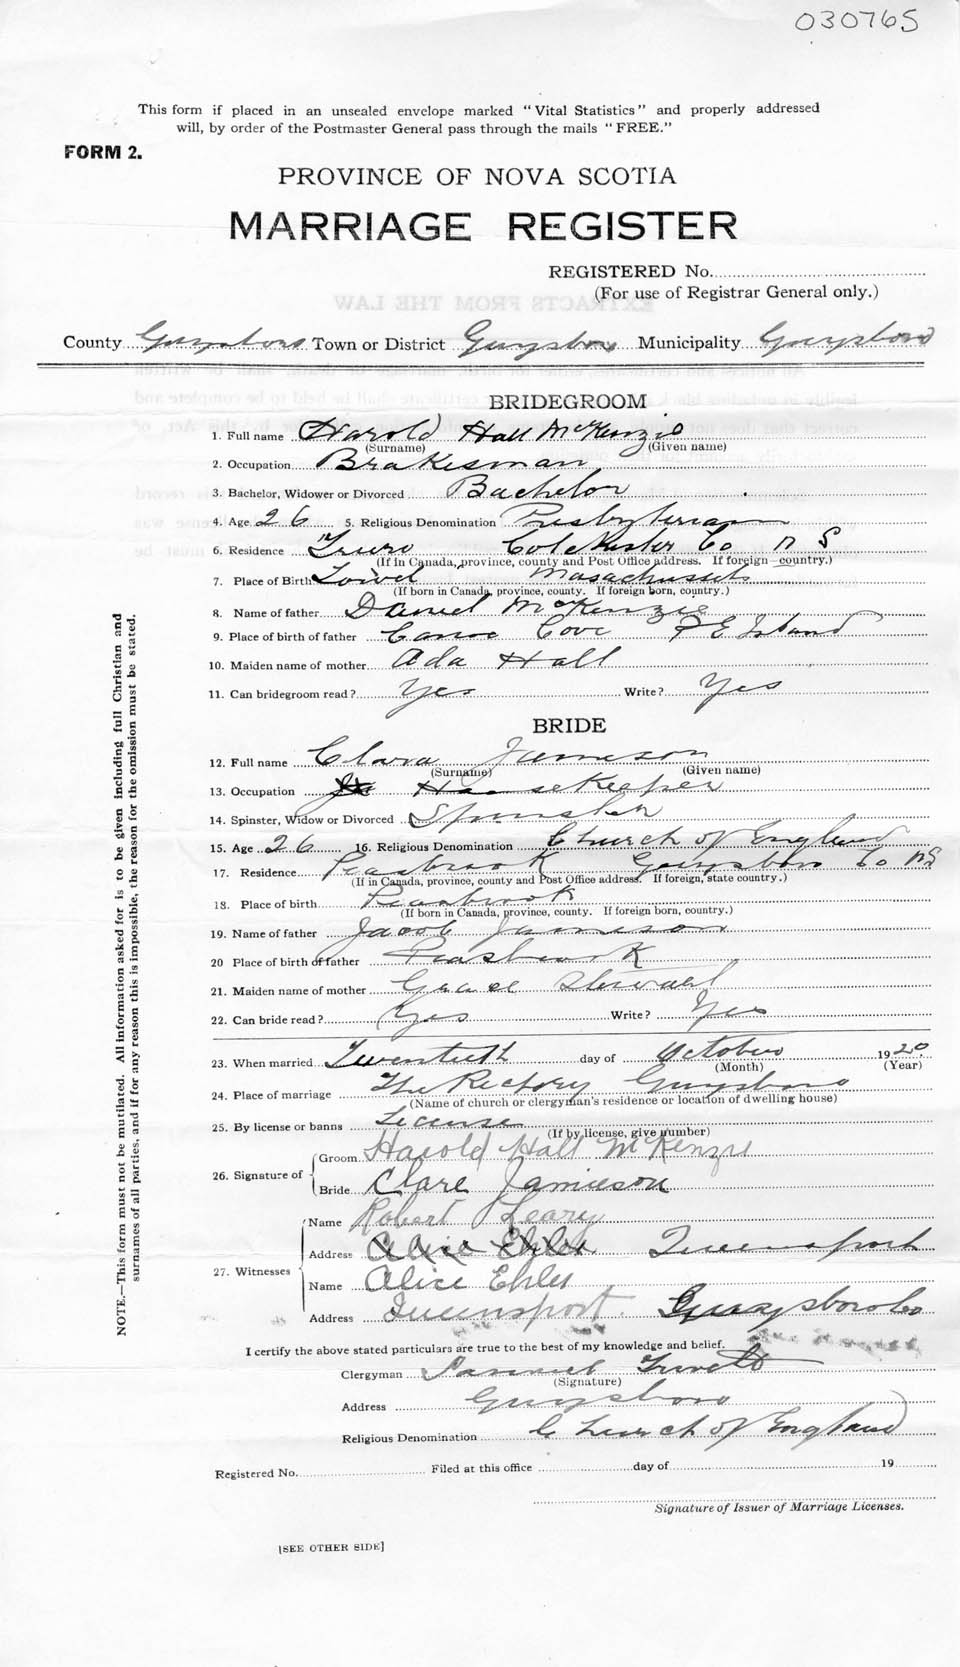 030765
This form if placed in an unsealed envelope marked "Vital Statistics" and properly addressed
will, by order of the Postmaster General pass through the mails "FREE."
FORM 2.
PROVINCE OF NOVA SCOTIA
MARRIAGE REGISTER
REGISTERED No.
(For use of Registrar General only.)
EXTRACTS FROM THE LAW
County Guysboro Town or District Guysboro Municipality Guysboro
BRIDEGROOM
1. Full name Harold Hall McKenzie
(Surname) (Given name)
2. Occupation Brakesman
3. Bachelor, Widower or Divorced Bachelor
4. Age 26 5. Religious Denomination Presbyterian
6. Residence Truro Colchester Co N S
(If in Canada, province, county and Post Office address. If foreign country.)
7. Place of Birth Lowel Masachussets
(If born in Canada, province, county. If foreign born, country.)
8. Name of father Daniel McKenzie
9. Place of birth of father Canoe Cove P E Island
10. Maiden name of mother Ada Hall
11. Can bridegroom read? Yes Write? Yes
BRIDE
12. Full name Clara Jameson
(Surname) (Given name)
13. Occupation Housekeeper
14. Spinster, Widow or Divorced Spinster
15. Age 26 16. Religious Denomination Church of England
17. Residence Peasbrook Guysboro Co NS
(If in Canada, province, county and Post Office address. If foreign, state country.)
18. Place of birth Peasbrook
(If born in Canada, province, county. If foreign born, country.)
19. Name of father Jacob Jameson
20 Place of birth of father Peasbrook
21. Maiden name of mother Grace
22. Can bride read? Yes Write? Yes
23. When married Twentieth day of October 1920
(Month) (Year)
24. Place of marriage The Rectory Guysboro
(Name of church or clergyman's residence or location of dwelling house)
25. By license or banns License
(If by license, give number)
26. Signature of Groom Harold Hall McKenzie
Bride Clare Jamieson
27. Witnesses Name Robert O'Leary
Address Alice Ehler Queensport
Name Alice Ehler
Address Queensport. Guysboro Co
I certify the above stated particulars are true to the best of my knowledge and belief.
Clergyman Samuel
(Signature)
Address Guysboro
Religious Denomination Church of England
Registered No. Filed at this office day of 19
Signature of Issuer of Marriage Licenses.
[SEE OTHER SIDE]
NOTE.—This form must not be mutilated. All information asked for is to be given including full Christian and
surnames of all parties, and if for any reason this is impossible, the reason for the omission must be stated.